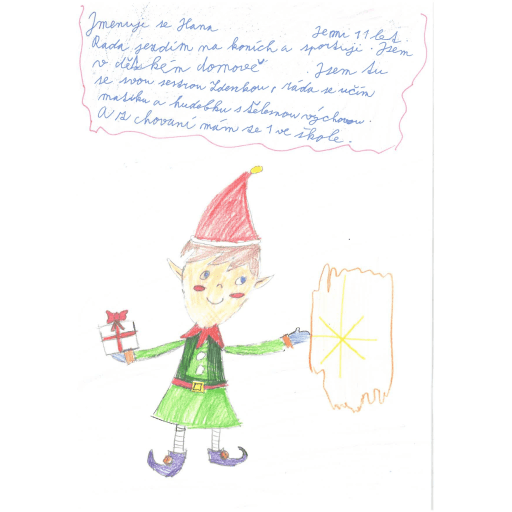 Jmenuji se Hana Jemi 11 let.
Ráda jezdím na koních a sportuji. Jsem
v dětském domově Jsem tu
se svou sestrou Zdenkou, ráda se učím
matiku a hudebku s tělesnou výchovou.
A z chovaní mám se 1 ve škole.